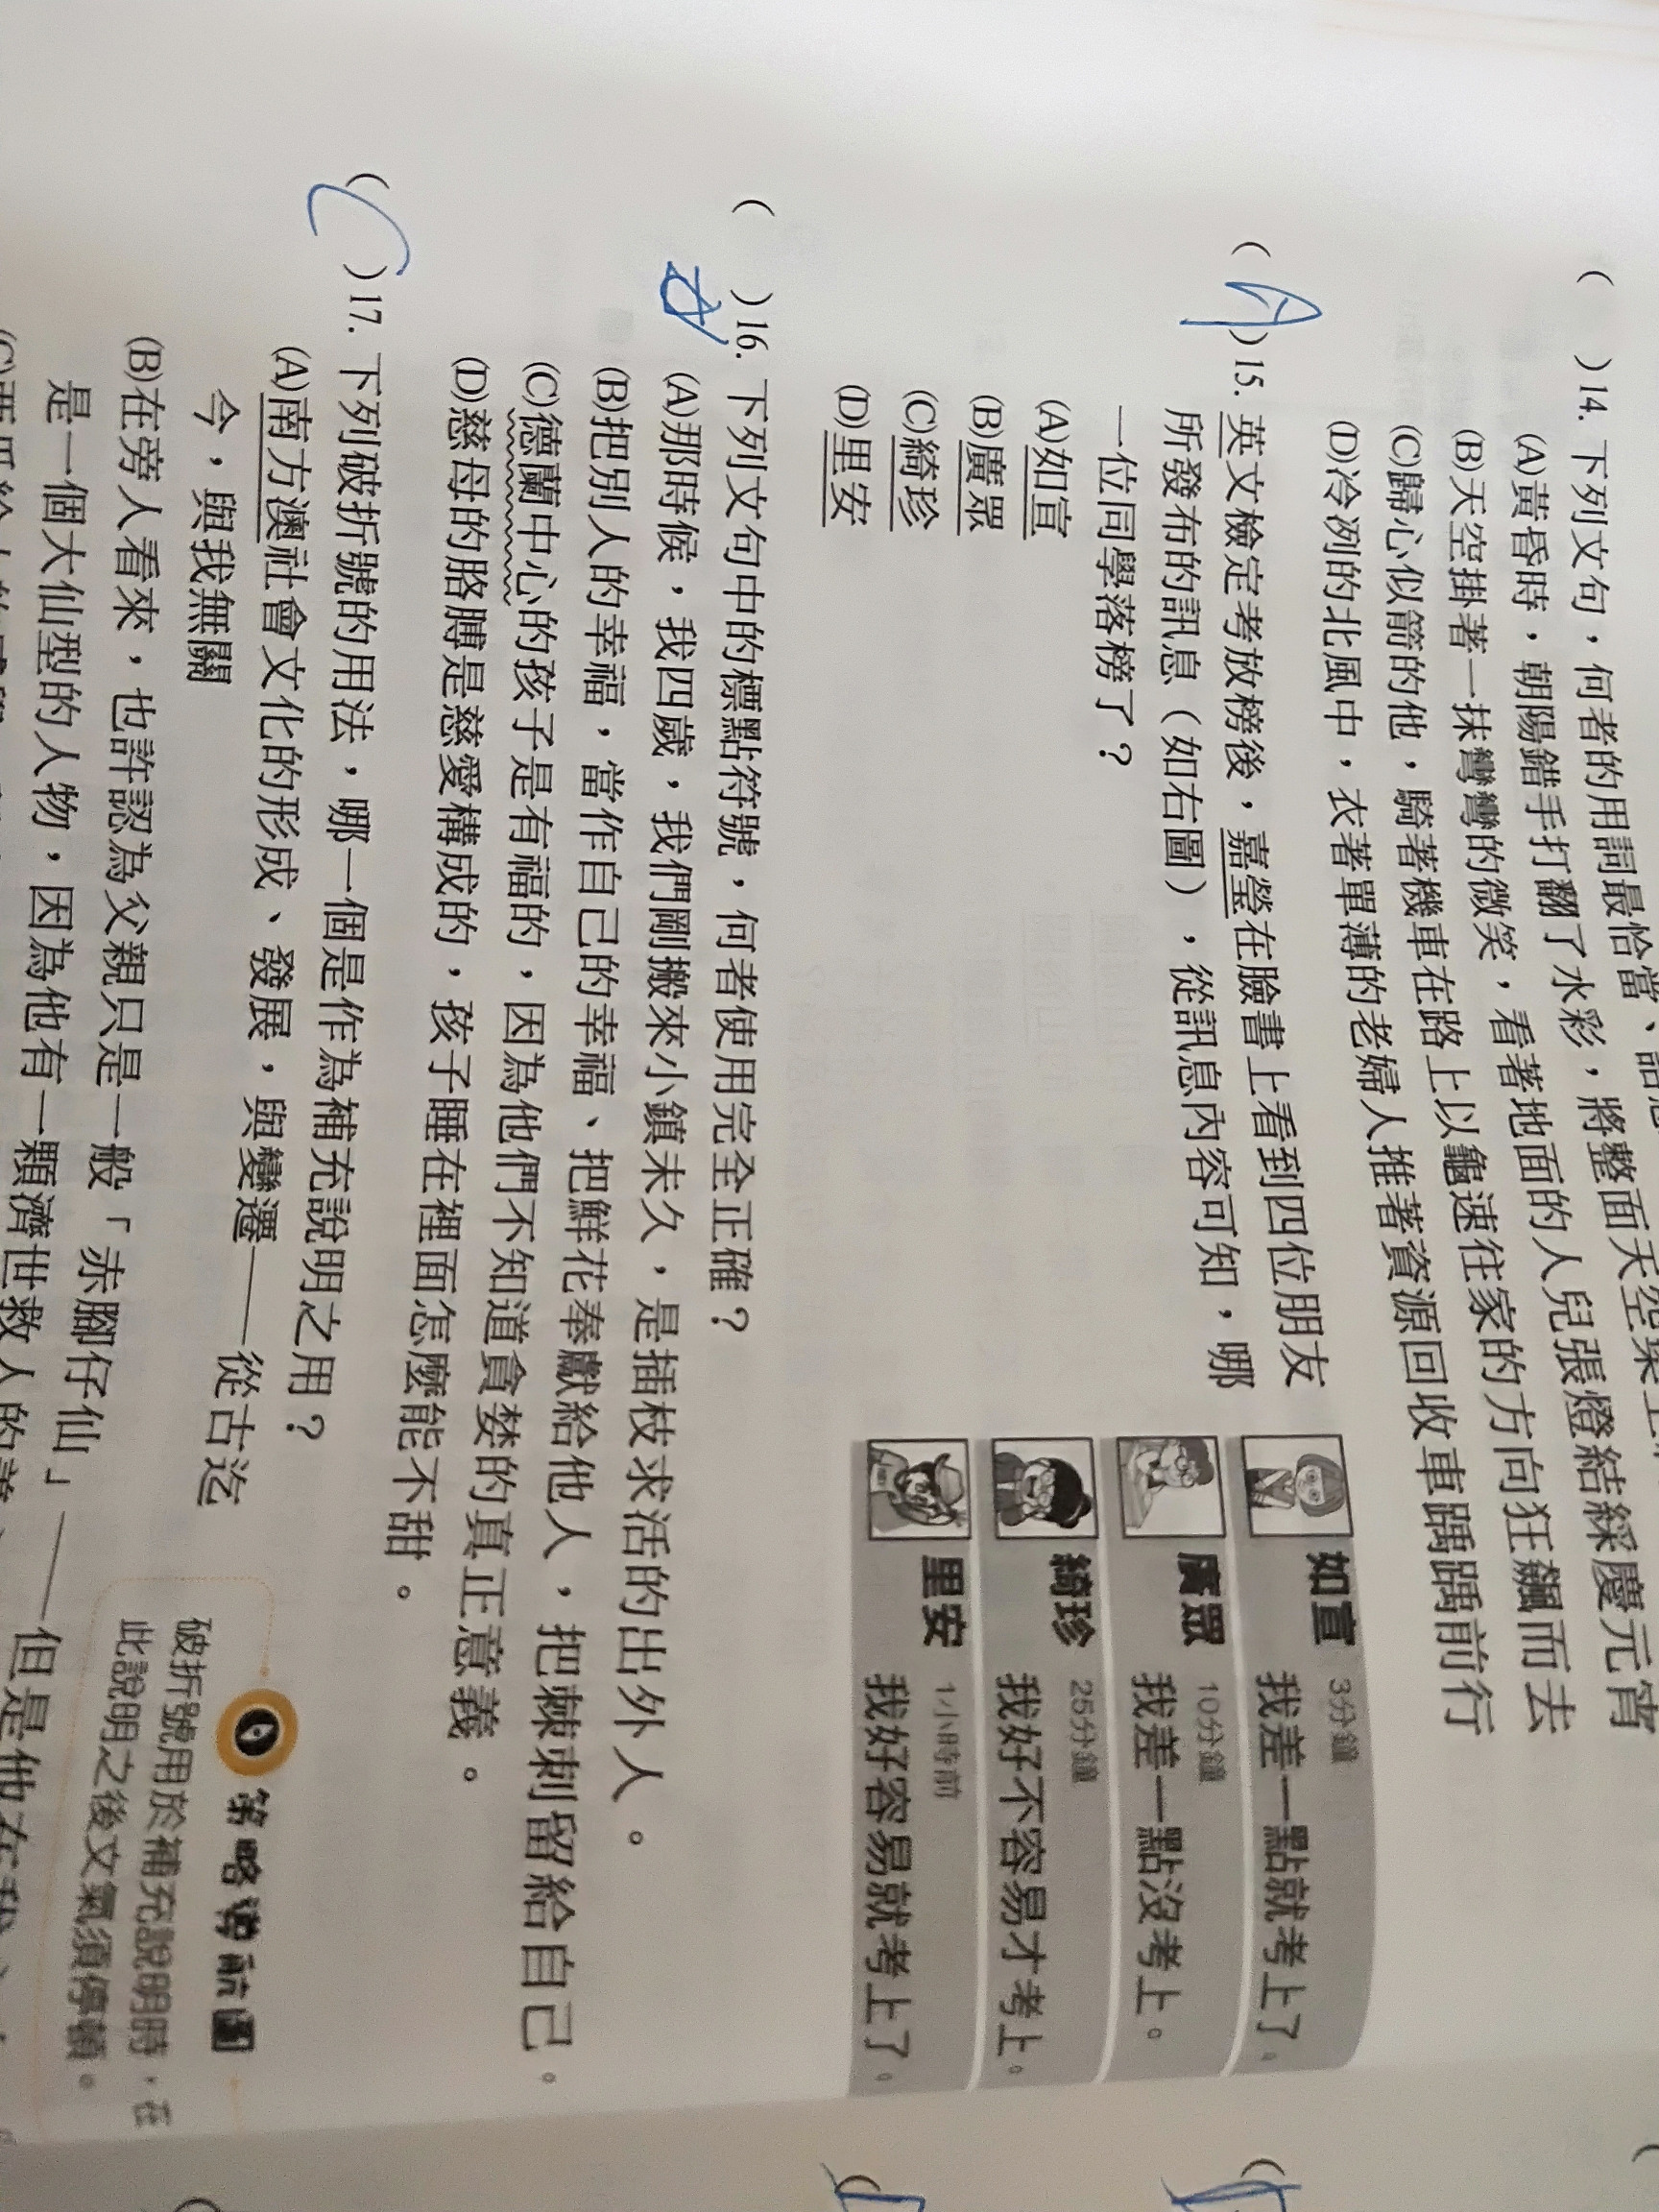 ( )14. 下列文句,何者的用詞最恰當、
(A)黃昏時,朝陽錯手打翻了水彩,將整面天空
(B)天空掛著一抹彎彎的微笑,看著地面的人兒張燈結綵慶元宵
(C)歸心似箭的他,騎著機車在路上以龜速往家的方向狂飆而去
(D)冷冽的北風中,衣著單薄的老婦人推著資源回收車踽踽前行
(A)15. 英文檢定考放榜後,嘉瑩在臉書上看到四位朋友
所發布的訊息(如右圖),從訊息內容可知,哪
一位同學落榜了?
(A)如宣
(B)廣眾
(C)綺珍
(D)里安
如宣 3分鐘
我差一點就考上了。
廣眾 10分鐘
我差一點沒考上。
綺珍 25分鐘
我好不容易才考上。
里安 1小時前
我好容易就考上了。
( )16. 下列文句中的標點符號,何者使用完全正確?
(A)那時候,我四歲,我們剛搬來小鎮未久,是插枝求活的出外人。
(B)把別人的幸福,當作自己的幸福、把鮮花奉獻給他人,把棘刺留給自己。
(C)德蘭中心的孩子是有福的,因為他們不知道貪婪的真正意義。
(D)慈母的胳膊是慈愛構成的,孩子睡在裡面怎麼能不甜。
( )17. 下列破折號的用法,哪一個是作為補充說明之用?
(A)南方澳社會文化的形成、發展,與變遷——從古迄
今,與我無關
(B)在旁人看來,也許認為父親只是一般「赤腳仔仙」——但是他在我
是一個大仙型的人物,因為他有一顆濟世救人的
策略導航圖
破折號用於補充說明時,在
此說明之後文氣須停頓。